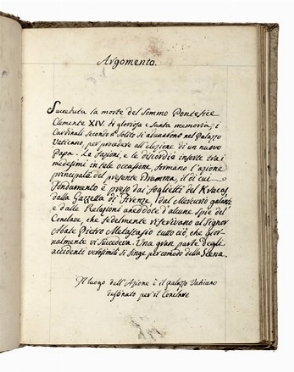 Argomento.
Succeduta la morte del Sommo Pontefice
Clemente XIV. di gloriosa e Santa memoria; i
Cardinali secondo il Solito si adunarono nel Palazzo
Vaticano per procedere all'elezione di un nuovo
Papa. Le fazioni, e le discordie insorte tra i
medesimi in tale occasione, formano l'azione
principale del presente Dramma, il di cui
fondamento è preso dai foglietti del Kracos
dalla Gazzetta di Firenze, dal Mercurio
e dalle Relazioni anedote d'alcune Spie del
Conclave, che fedelmente riferivano al Signor
Abate Pietro Metastasio tutto ciò, che gior-
nalmente vi succedeva. Una gran parte degli
accidenti verisimili si finge per comodo della Scena.
Il luogo dell'Azione è il palazzo Vaticano
destinato per il Conclave